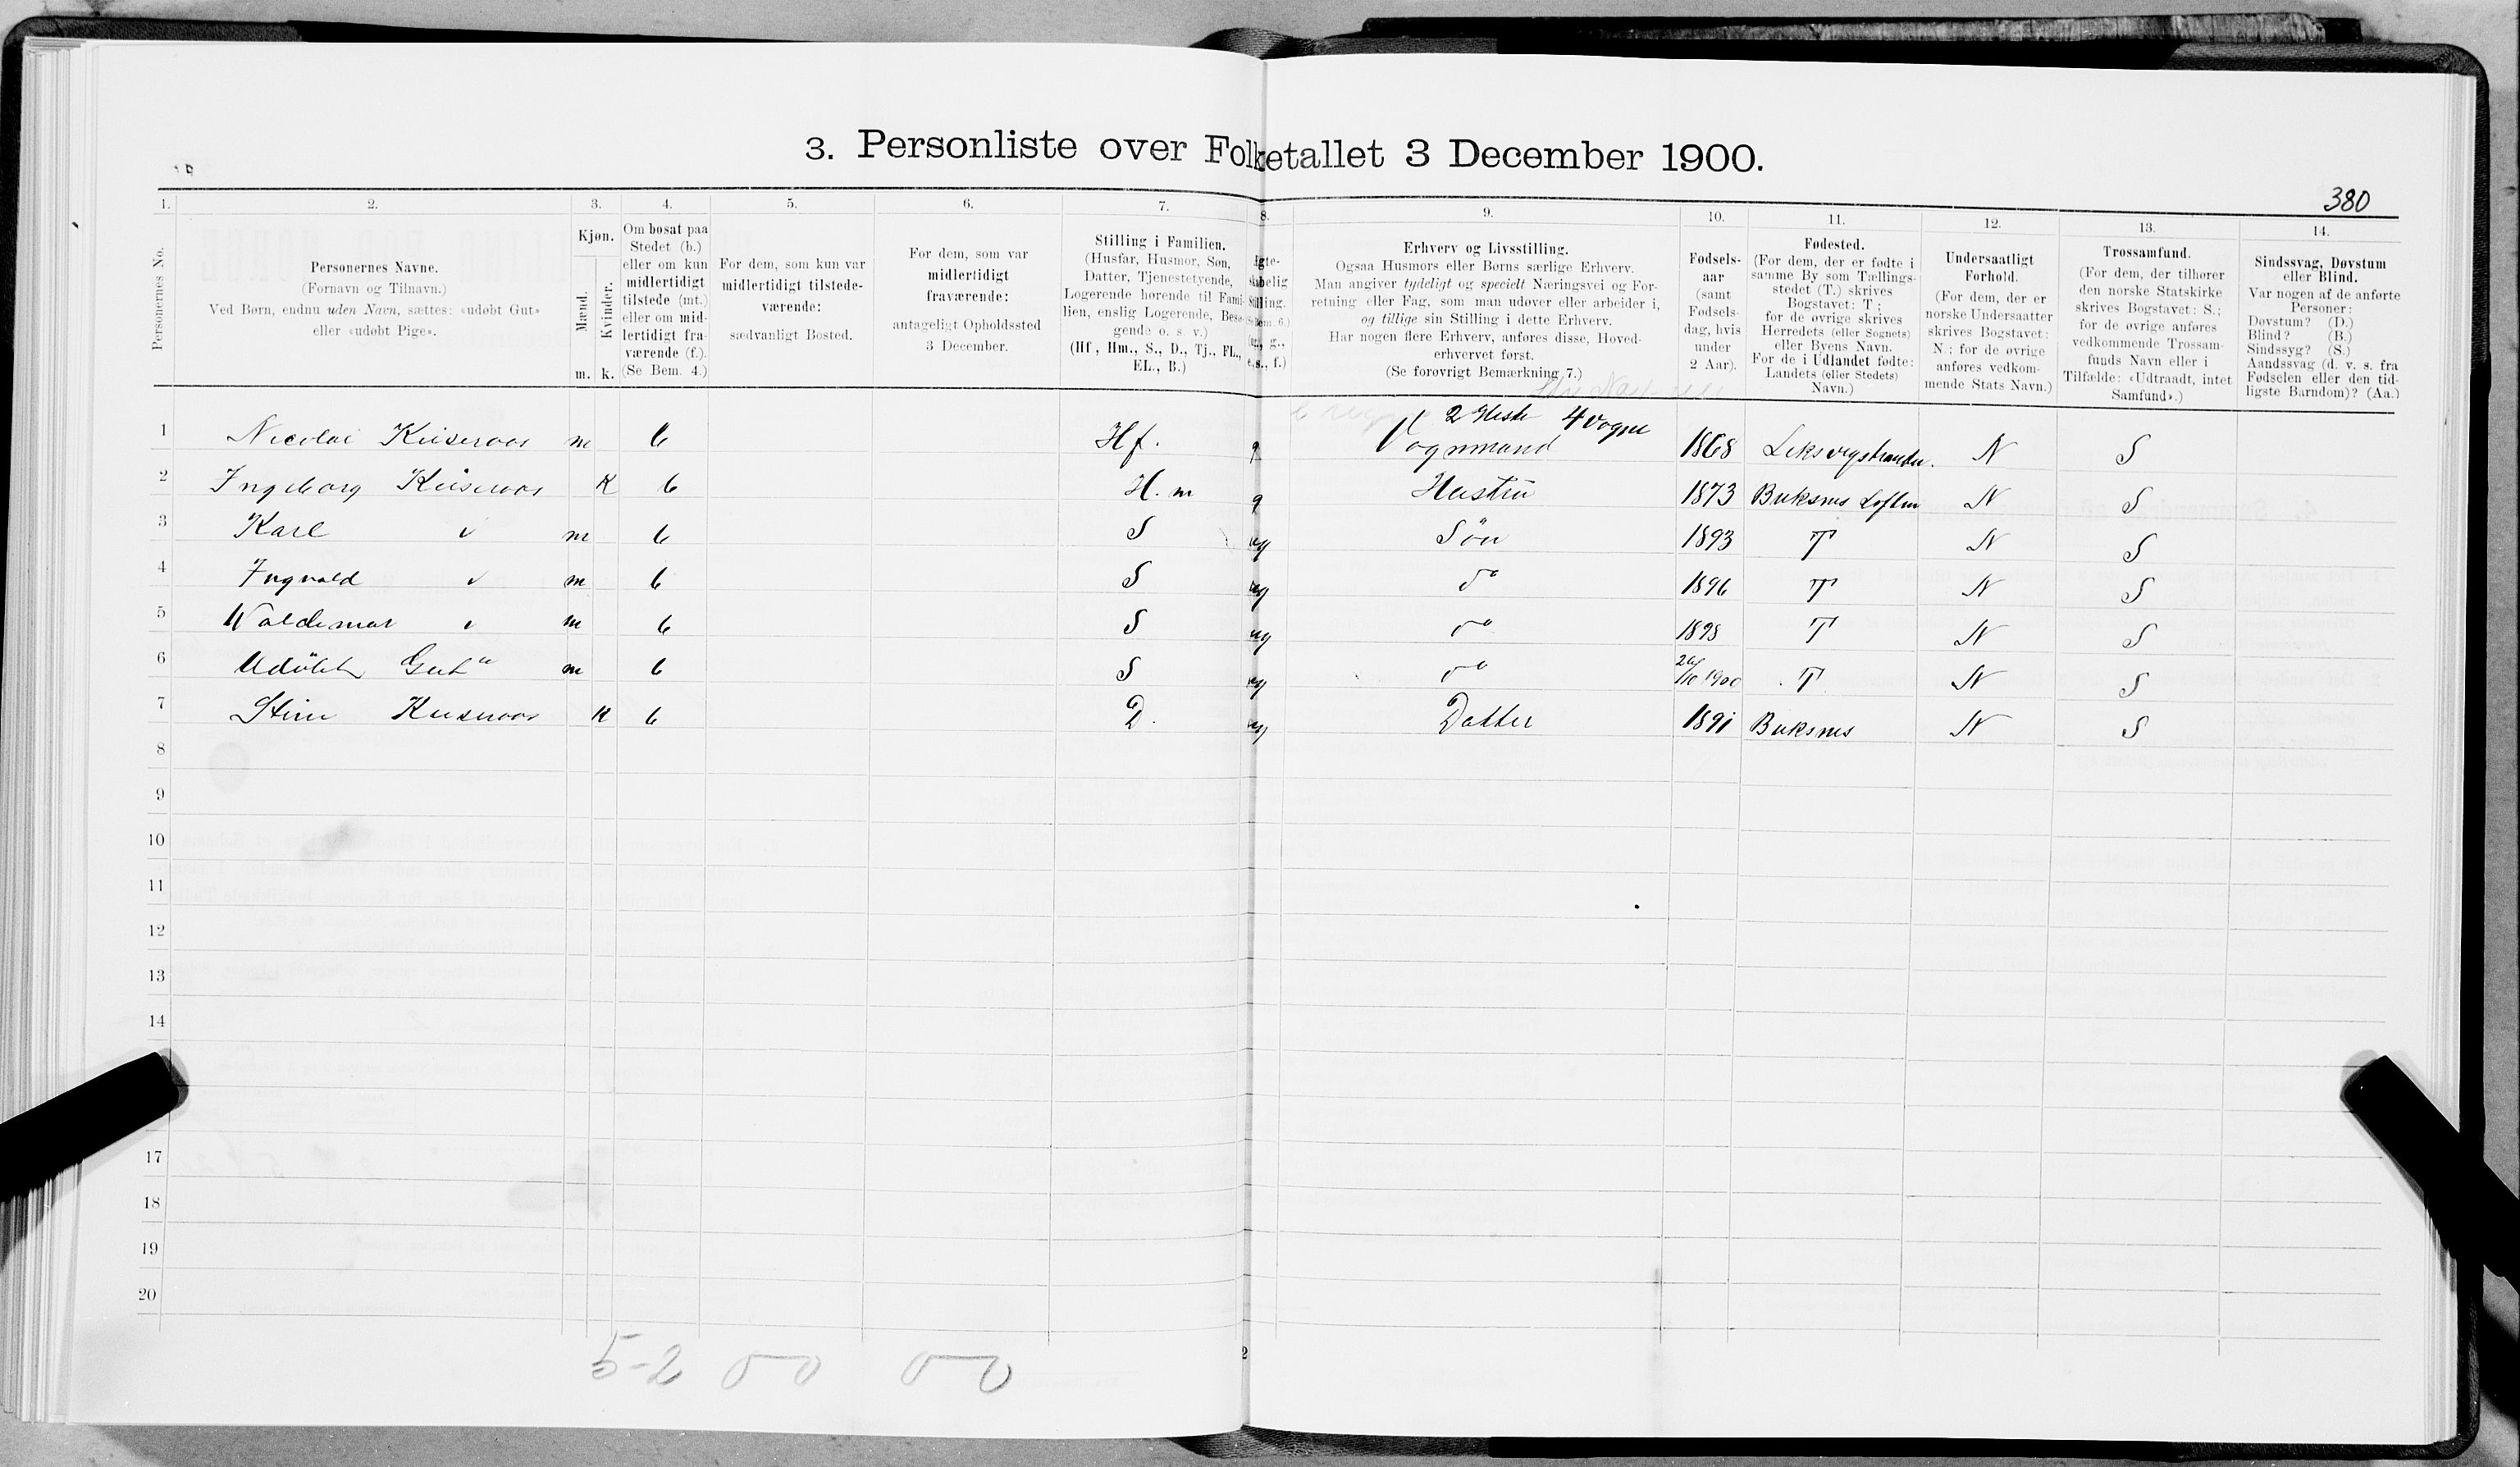 3. Personliste over Folketallet 3 December 1900.
380
1. 2. 3. 4. 5. 6. 7. 8. 9. 10. 11. 12. 13. 14.
Personernes No.
Personernes Navne.
(Fornavn og Tilnavn.)
Ved Børn, endnu uden Navn, sættes: «udøbt Gut»
eller «udøbt Pige».
Kjøn.
Mænd.
Kvinder.
m. k.
Om bosat paa
Stedet (b.)
eller om kun
midlertidigt
tilstede (mt.)
eller om mid-
lertidigt fra-
værende (f.).
(Se Bem. 4.)
For dem, som kun var
midlertidigt tilstede-
værende:
sædvanligt Bosted.
For dem, som var
midlertidigt
fraværende:
antageligt Opholdssted
3 December.
Stilling i Familien.
(Husfar, Husmor, Søn,
Datter, Tjenestetyende,
Logerende hørende til Fami-
lien, enslig Logerende, Besø-
gende o. s. v.)
(Hf., Hm., S., D., Tj., FL.,
EL., B.)
Erhverv og Livsstilling.
Ogsaa Husmors eller Børns særlige Erhverv.
Man angiver tydeligt og specielt Næringsvei og For-
retning eller Fag, som man udøver eller arbeider i,
og tillige sin Stilling i dette Erhverv.
Har nogen flere Erhverv, anføres disse, Hoved-
erhvervet først.
(Se forøvrigt Bemærkning 7.)
Fødsels-
aar
(samt
Fødsels-
dag, hvis
under
2 Aar).
Fødested.
(For dem, der er fødte i
samme By som Tællings-
stedet (T.) skrives
Bogstavet: T;
for de øvrige skrives
Herredets (eller Sognets)
eller Byens Navn.
For de i Udlandet fødte:
Landets (eller Stedets)
Navn.)
Undersaatligt
Forhold.
(For dem, der er
norske Undersaatter
skrives Bogstavet:
N.; for de øvrige
anføres vedkom-
mende Stats Navn.)
Trossamfund.
(For dem, der tilhører
den norske Statskirke
skrives Bogstavet: S.;
for de øvrige anføres
vedkommende Trossam-
funds Navn eller i
Tilfælde: «Udtraadt, intet
Samfund».)
Sindssvag, Døvstum
eller Blind.
Var nogen af de anførte
Personer:
Døvstum? (D.)
Blind? (B.)
Sindssyg? (S.)
Aandssvag (d. v. s. fra
Fødselen eller den tid-
ligste Barndom)? (Aa.)
2 Heste 4 Vogne
1 Nicolai m b Hf. g Vognmand 1868 N S
2 Ingeborg K b H.m g Hustru 1873 Buksnes Loften N S
3 Karl " m b S ug Søn 1893 T N S
4 Ingvald " m b S ug do 1896 T N S
5 Waldemar " m b S ug do 1898 T N S
6 Udöbt Gut " m b S ug do 26/10 1900 T N S
7 K b D. ug Datter 1891 Buksnes N S
8
9
10
11
12
13
14
17
18
19
20
5-2 0 0 0 0
2